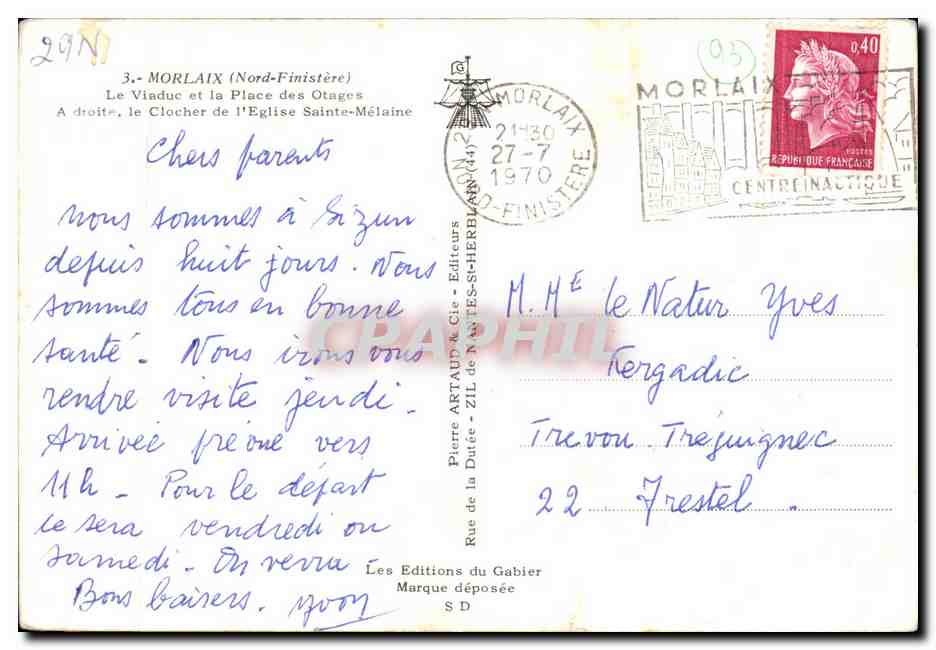 29N
3.- MORLAIX (Nord-Finistère)
Le Viaduc et la Place des Otages
A droite, le Clocher de l'Eglise Sainte-Mélaine
Chers parents
Nous sommes à Sizun
depuis huit jours. Nous
sommes tous en bonne
santé - Nous irons vous
rendre visite jeudi -
Arrivée prévue vers
11h - Pour le départ
ce sera vendredi ou
samedi - On verra -
Bons baisers. Yvon
Pierre ARTAUD & Cie - Editeurs
Rue de la Dutée - ZIL de NANTES-St-HERBLAIN (44)
Les Editions du Gabier
Marque déposée
S D
G
29 MORLAIX
21H30
27-7
1970
NORD-FINISTERE
MORLAIX
CENTRE NAUTIQUE
(93)
0,40
POSTES
REPUBLIQUE FRANÇAISE
M. Mᴱ le Natur Yves
Kergadic
Trevou Tréguignec
22 Trestel.
CPAPHIL